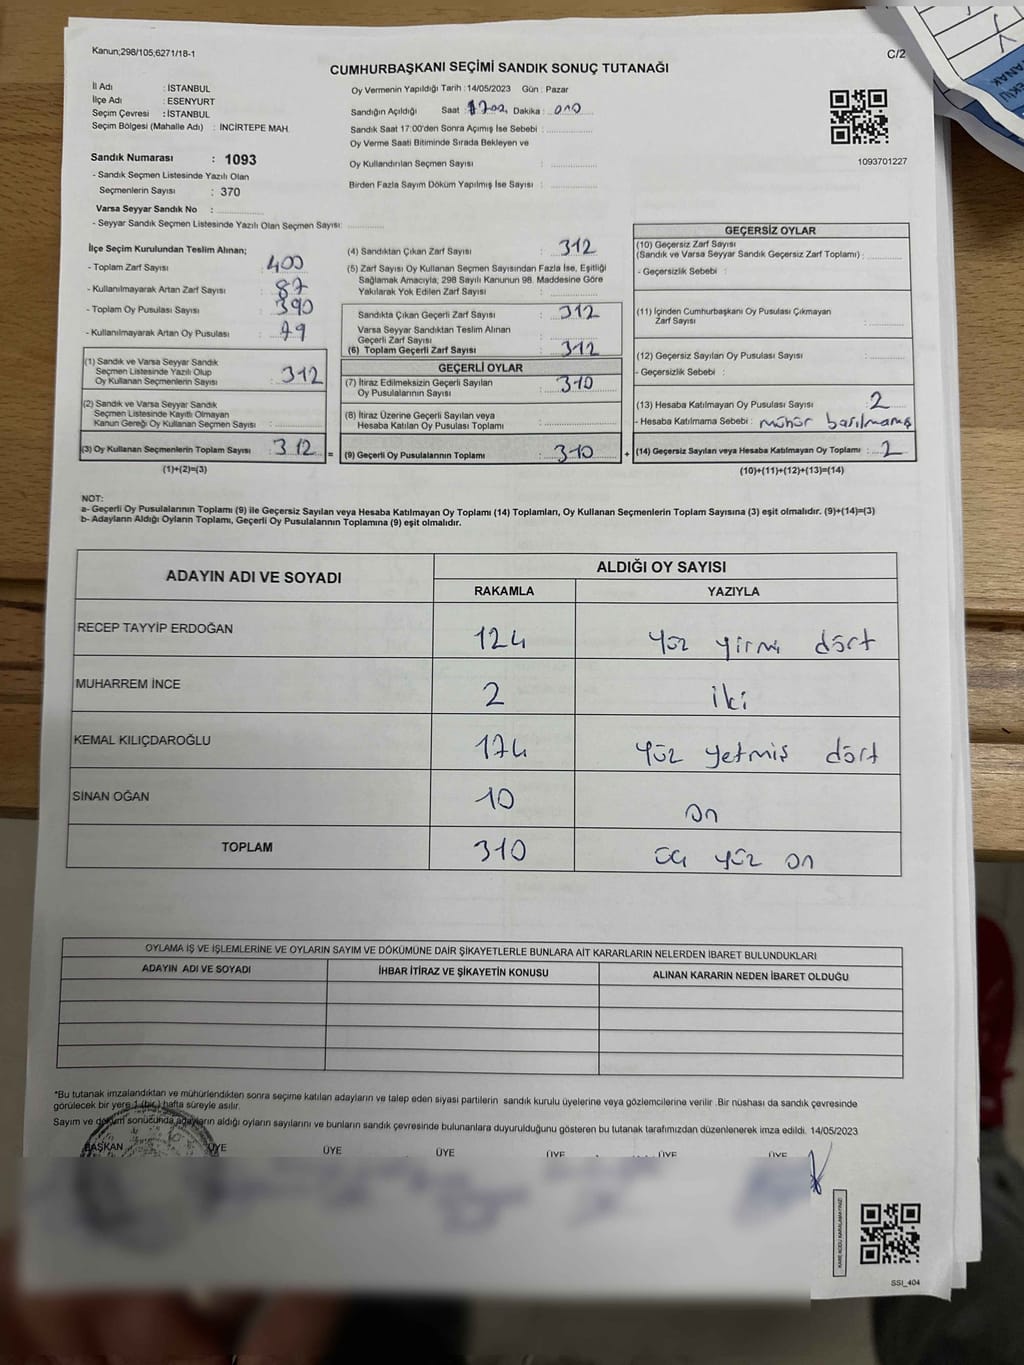 Kanun;298/105;6271/18-1
C/2
CUMHURBAŞKANI SEÇİMİ SANDIK SONUÇ TUTANAĞI
İl Adı : İSTANBUL
İlçe Adı : ESENYURT
Seçim Çevresi : İSTANBUL
Seçim Bölgesi (Mahalle Adı) : İNCİRTEPE MAH.
Sandık Numarası : 1093
- Sandık Seçmen Listesinde Yazılı Olan
Seçmenlerin Sayısı : 370
Varsa Seyyar Sandık No :
- Seyyar Sandık Seçmen Listesinde Yazılı Olan Seçmen Sayısı:
Oy Vermenin Yapıldığı Tarih : 14/05/2023 Gün : Pazar
Sandığın Açıldığı Saat : Dakika :
Sandık Saat 17:00'den Sonra Açımış İse Sebebi :
Oy Verme Saati Bitiminde Sırada Bekleyen ve
Oy Kullandırılan Seçmen Sayısı :
Birden Fazla Sayım Döküm Yapılmış İse Sayısı :
1093701227
İlçe Seçim Kurulundan Teslim Alınan;
- Toplam Zarf Sayısı : 400
- Kullanılmayarak Artan Zarf Sayısı : 87
- Toplam Oy Pusulası Sayısı : 390
- Kullanılmayarak Artan Oy Pusulası : 79
(1) Sandık ve Varsa Seyyar Sandık
Seçmen Listesinde Yazılı Olup
Oy Kullanan Seçmenlerin Sayısı : 312
(2) Sandık ve Varsa Seyyar Sandık
Seçmen Listesinde Kayıtlı Olmayan
Kanun Gereği Oy Kullanan Seçmen Sayısı :
(3) Oy Kullanan Seçmenlerin Toplam Sayısı : 312 =
(1)+(2)=(3)
(4) Sandıktan Çıkan Zarf Sayısı : 312
(5) Zarf Sayısı Oy Kullanan Seçmen Sayısından Fazla İse, Eşitliği
Sağlamak Amacıyla; 298 Sayılı Kanunun 98. Maddesine Göre
Yakılarak Yok Edilen Zarf Sayısı :
Sandıkta Çıkan Geçerli Zarf Sayısı : 312
Varsa Seyyar Sandıktan Teslim Alınan
Geçerli Zarf Sayısı :
(6) Toplam Geçerli Zarf Sayısı : 312
GEÇERLİ OYLAR
(7) İtiraz Edilmeksizin Geçerli Sayılan
Oy Pusulalarının Sayısı : 310
(8) İtiraz Üzerine Geçerli Sayılan veya
Hesaba Katılan Oy Pusulası Toplamı :
(9) Geçerli Oy Pusulalarının Toplamı : 310 +
GEÇERSİZ OYLAR
(10) Geçersiz Zarf Sayısı
(Sandık ve Varsa Seyyar Sandık Geçersiz Zarf Toplamı) :
- Geçersizlik Sebebi :
(11) İçinden Cumhurbaşkanı Oy Pusulası Çıkmayan
Zarf Sayısı :
(12) Geçersiz Sayılan Oy Pusulası Sayısı :
- Geçersizlik Sebebi :
(13) Hesaba Katılmayan Oy Pusulası Sayısı : 2
- Hesaba Katılmama Sebebi : mühür basılmamış
(14) Geçersiz Sayılan veya Hesaba Katılmayan Oy Toplamı : 2
(10)+(11)+(12)+(13)=(14)
NOT:
a- Geçerli Oy Pusulalarının Toplamı (9) ile Geçersiz Sayılan veya Hesaba Katılmayan Oy Toplamı (14) Toplamları, Oy Kullanan Seçmenlerin Toplam Sayısına (3) eşit olmalıdır. (9)+(14)=(3)
b- Adayların Aldığı Oyların Toplamı, Geçerli Oy Pusulalarının Toplamına (9) eşit olmalıdır.
ADAYIN ADI VE SOYADI
ALDIĞI OY SAYISI
RAKAMLA YAZIYLA
RECEP TAYYİP ERDOĞAN 124 yüz yirmi dört
MUHARREM İNCE 2 iki
KEMAL KILIÇDAROĞLU 174 yüz yetmiş dört
SİNAN OĞAN 10 on
TOPLAM 310 üç yüz on
OYLAMA İŞ VE İŞLEMLERİNE VE OYLARIN SAYIM VE DÖKÜMÜNE DAİR ŞİKAYETLERLE BUNLARA AİT KARARLARIN NELERDEN İBARET BULUNDUKLARI
ADAYIN ADI VE SOYADI İHBAR İTİRAZ VE ŞİKAYETİN KONUSU ALINAN KARARIN NEDEN İBARET OLDUĞU
*Bu tutanak imzalandıktan ve mühürlendikten sonra seçime katılan adayların ve talep eden siyasi partilerin sandık kurulu üyelerine veya gözlemcilerine verilir .Bir nüshası da sandık çevresinde
görülecek bir yere 1 (bir ) hafta süreyle asılır.
Sayım ve döküm sonucunda adayların aldığı oyların sayılarını ve bunların sandık çevresinde bulunanlara duyurulduğunu gösteren bu tutanak tarafımızdan düzenlenerek imza edildi. 14/05/2023
BAŞKAN ÜYE ÜYE ÜYE ÜYE ÜYE ÜYE
SSI_404